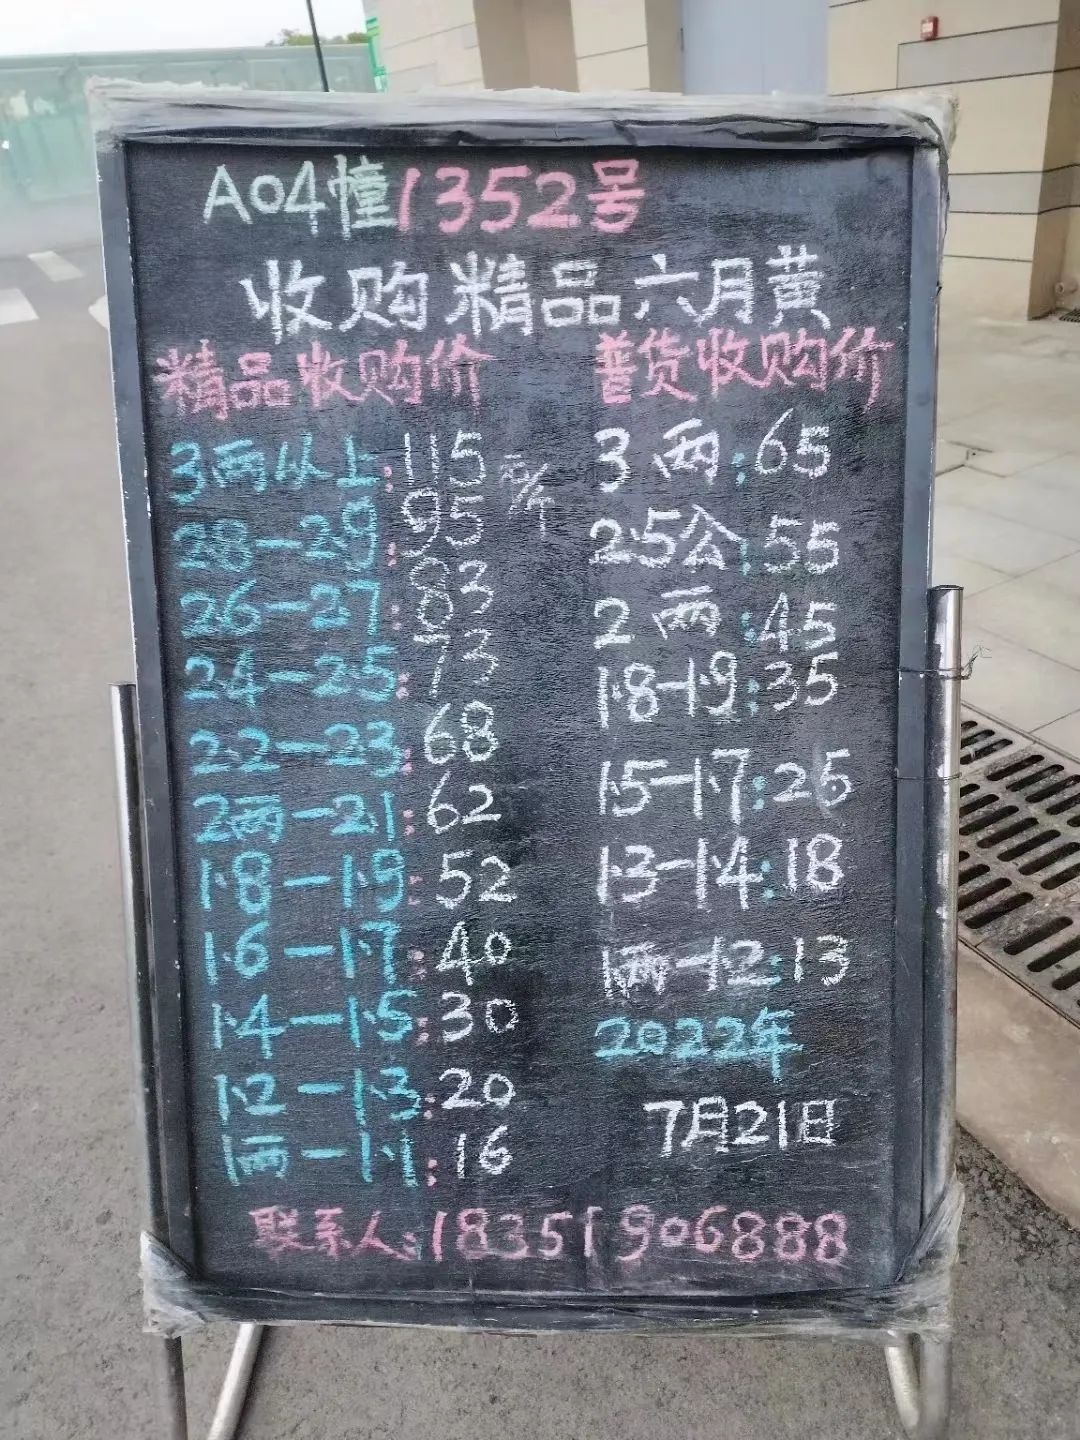 A04幢1352号
收购精品六月黄
精品收购价
3两以上:115元/斤
28-2.9:95
26-2.7:83
24-25:73
2.2-23:68
2两-21:62
1.8-1.9:52
1.6-1.7:40
1.4-1.5:30
1.2-1.3:20
1两-1.1:16
普货收购价
3两:65
2.5公:55
2两:45
1.8-1.9:35
1.5-1.7:25
1.3-1.4:18
1两-1.2:13
2022年
7月21日
联系人:18351906888